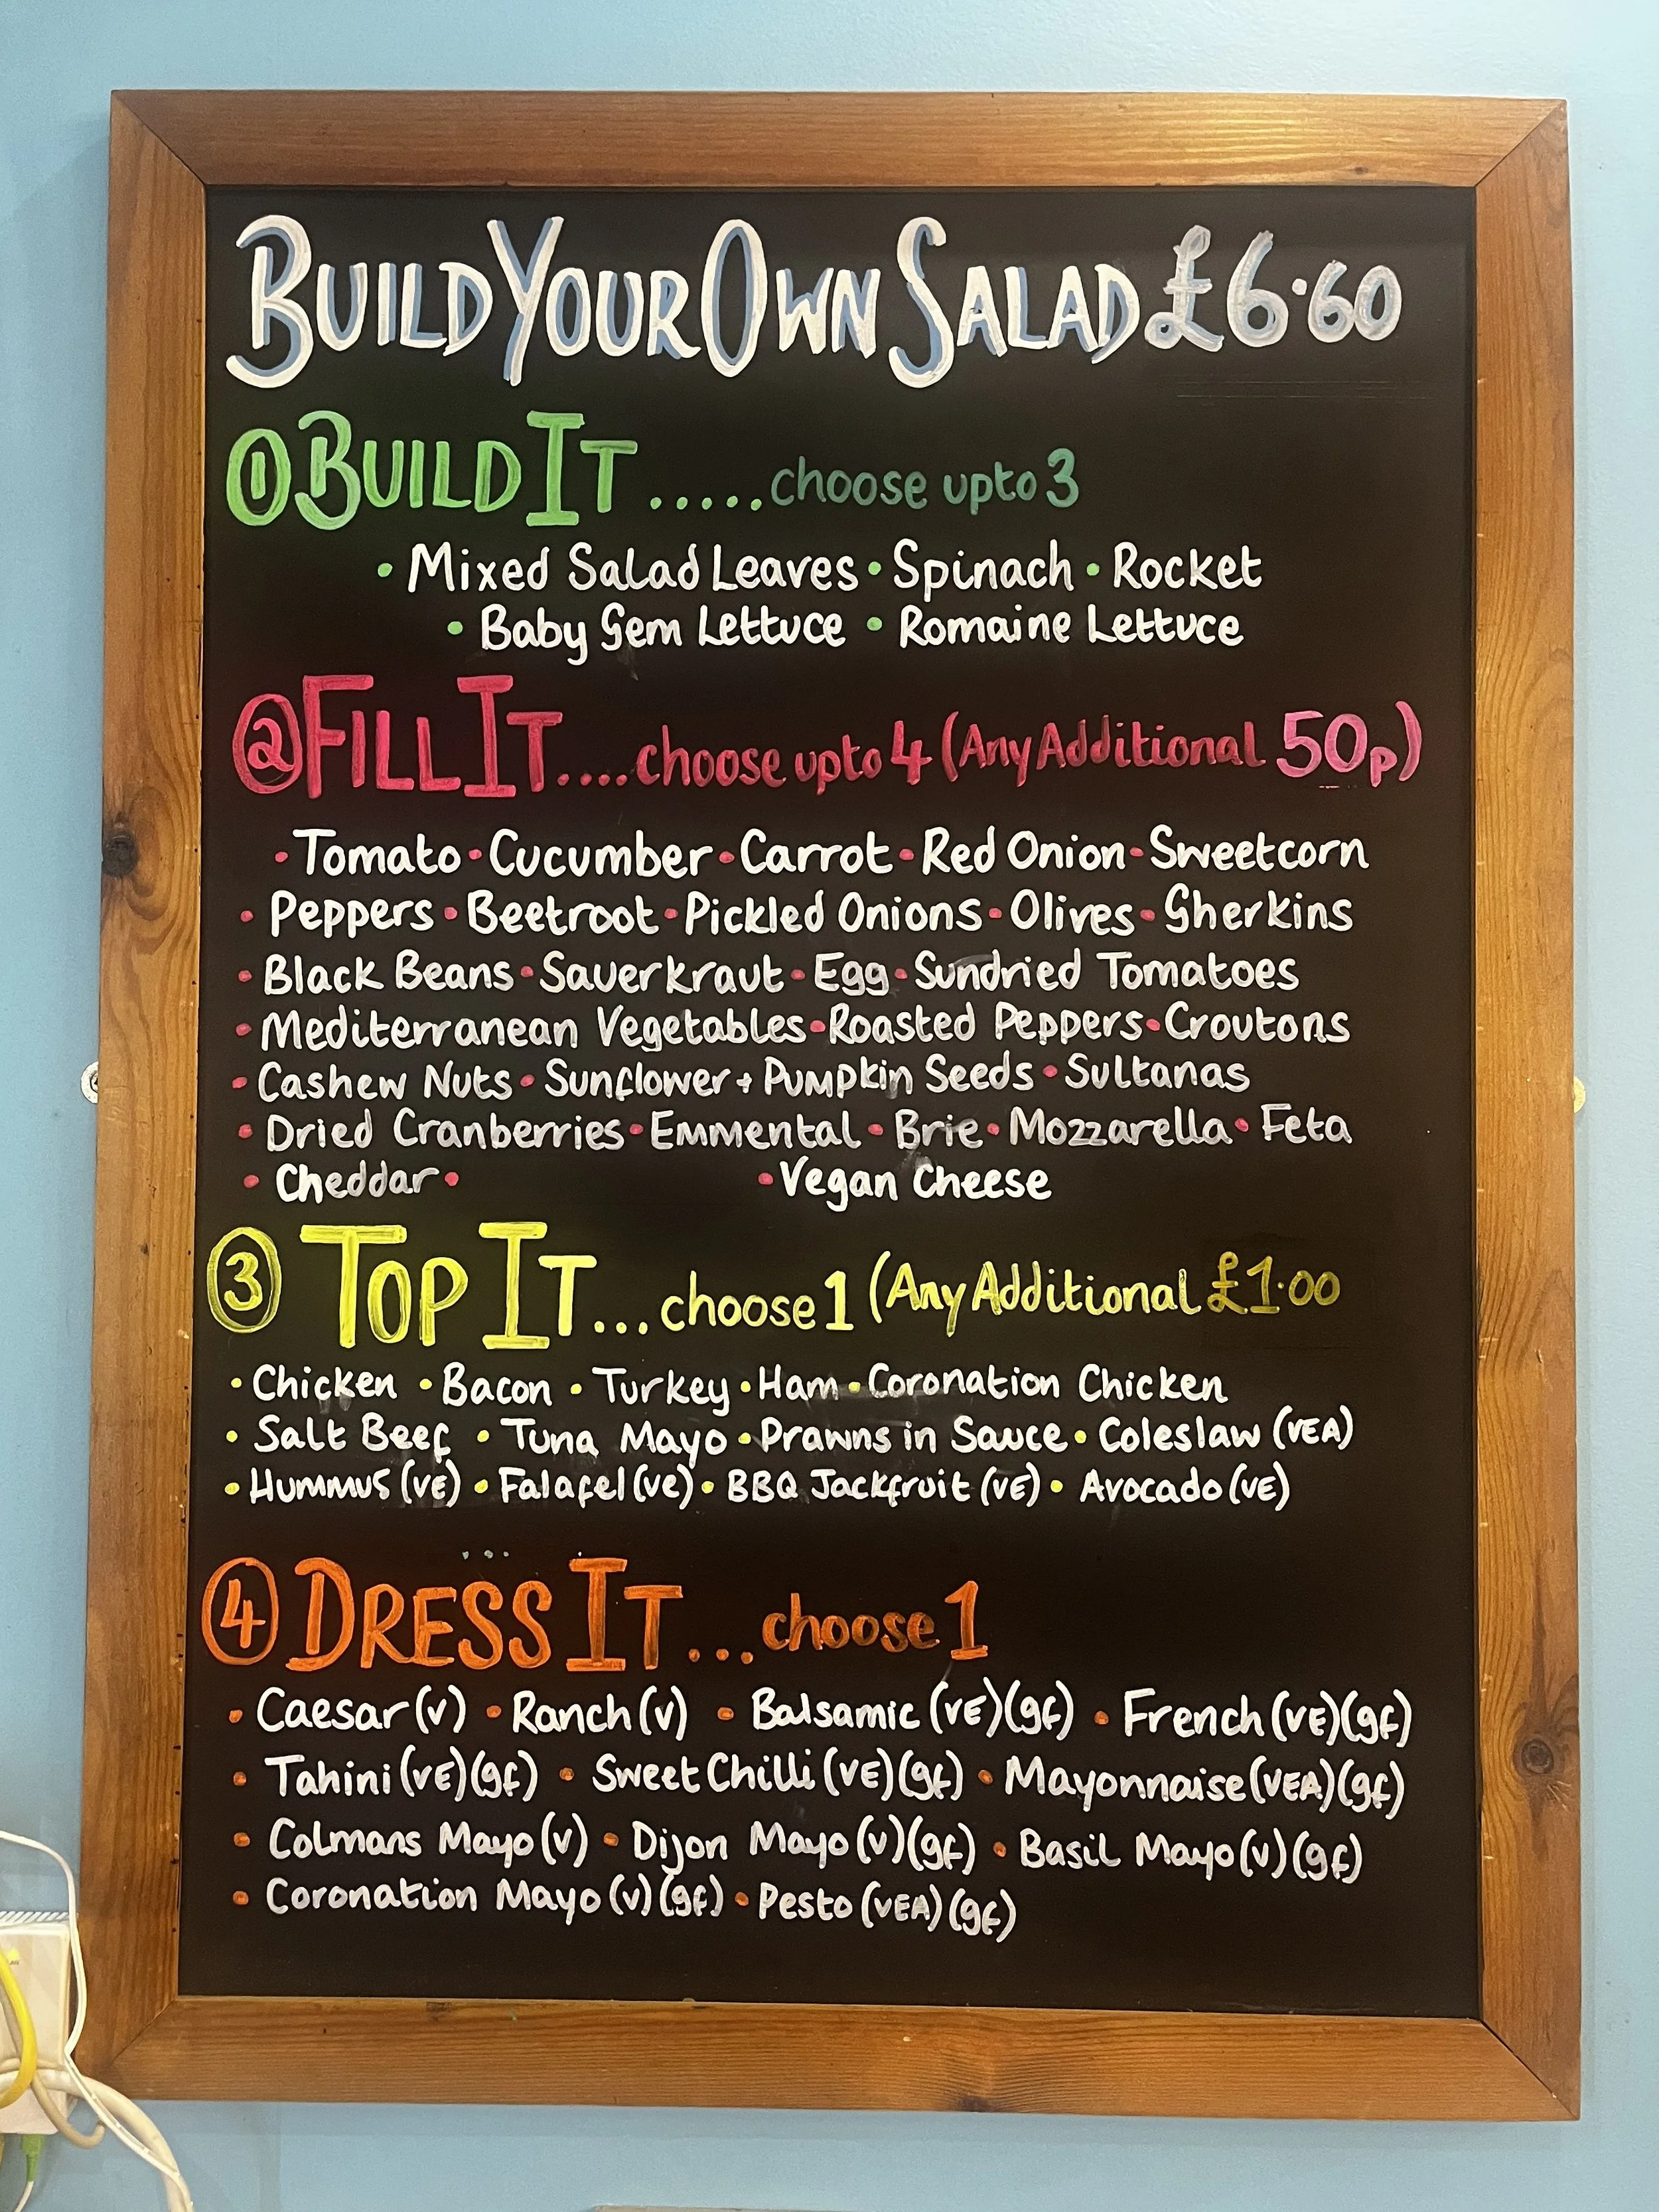 Build Your Own Salad £6.60
① Build It.....choose upto 3
• Mixed Salad Leaves • Spinach • Rocket
• Baby Gem Lettuce • Romaine Lettuce
② Fill It....choose upto 4 (Any Additional 50p)
• Tomato • Cucumber • Carrot • Red Onion • Sweetcorn
• Peppers • Beetroot • Pickled Onions • Olives • Gherkins
• Black Beans • Sauerkraut • Egg • Sundried Tomatoes
• Mediterranean Vegetables • Roasted Peppers • Croutons
• Cashew Nuts • Sunflower + Pumpkin Seeds • Sultanas
• Dried Cranberries • Emmental • Brie • Mozzarella • Feta
• Cheddar • • Vegan Cheese
③ Top It...choose 1 (Any Additional £1.00
• Chicken • Bacon • Turkey • Ham • Coronation Chicken
• Salt Beef • Tuna Mayo • Prawns in Sauce • Coleslaw (VEA)
• Hummus (VE) • Falafel (VE) • BBQ Jackfruit (VE) • Avocado (VE)
④ Dress It...choose 1
• Caesar (V) • Ranch (V) • Balsamic (VE) (gf) • French (VE) (gf)
• Tahini (VE) (gf) • Sweet Chilli (VE) (gf) • Mayonnaise (VEA) (gf)
• Colmans Mayo (V) • Dijon Mayo (V) (gf) • Basil Mayo (V) (gf)
• Coronation Mayo (V) (gf) • Pesto (VEA) (gf)